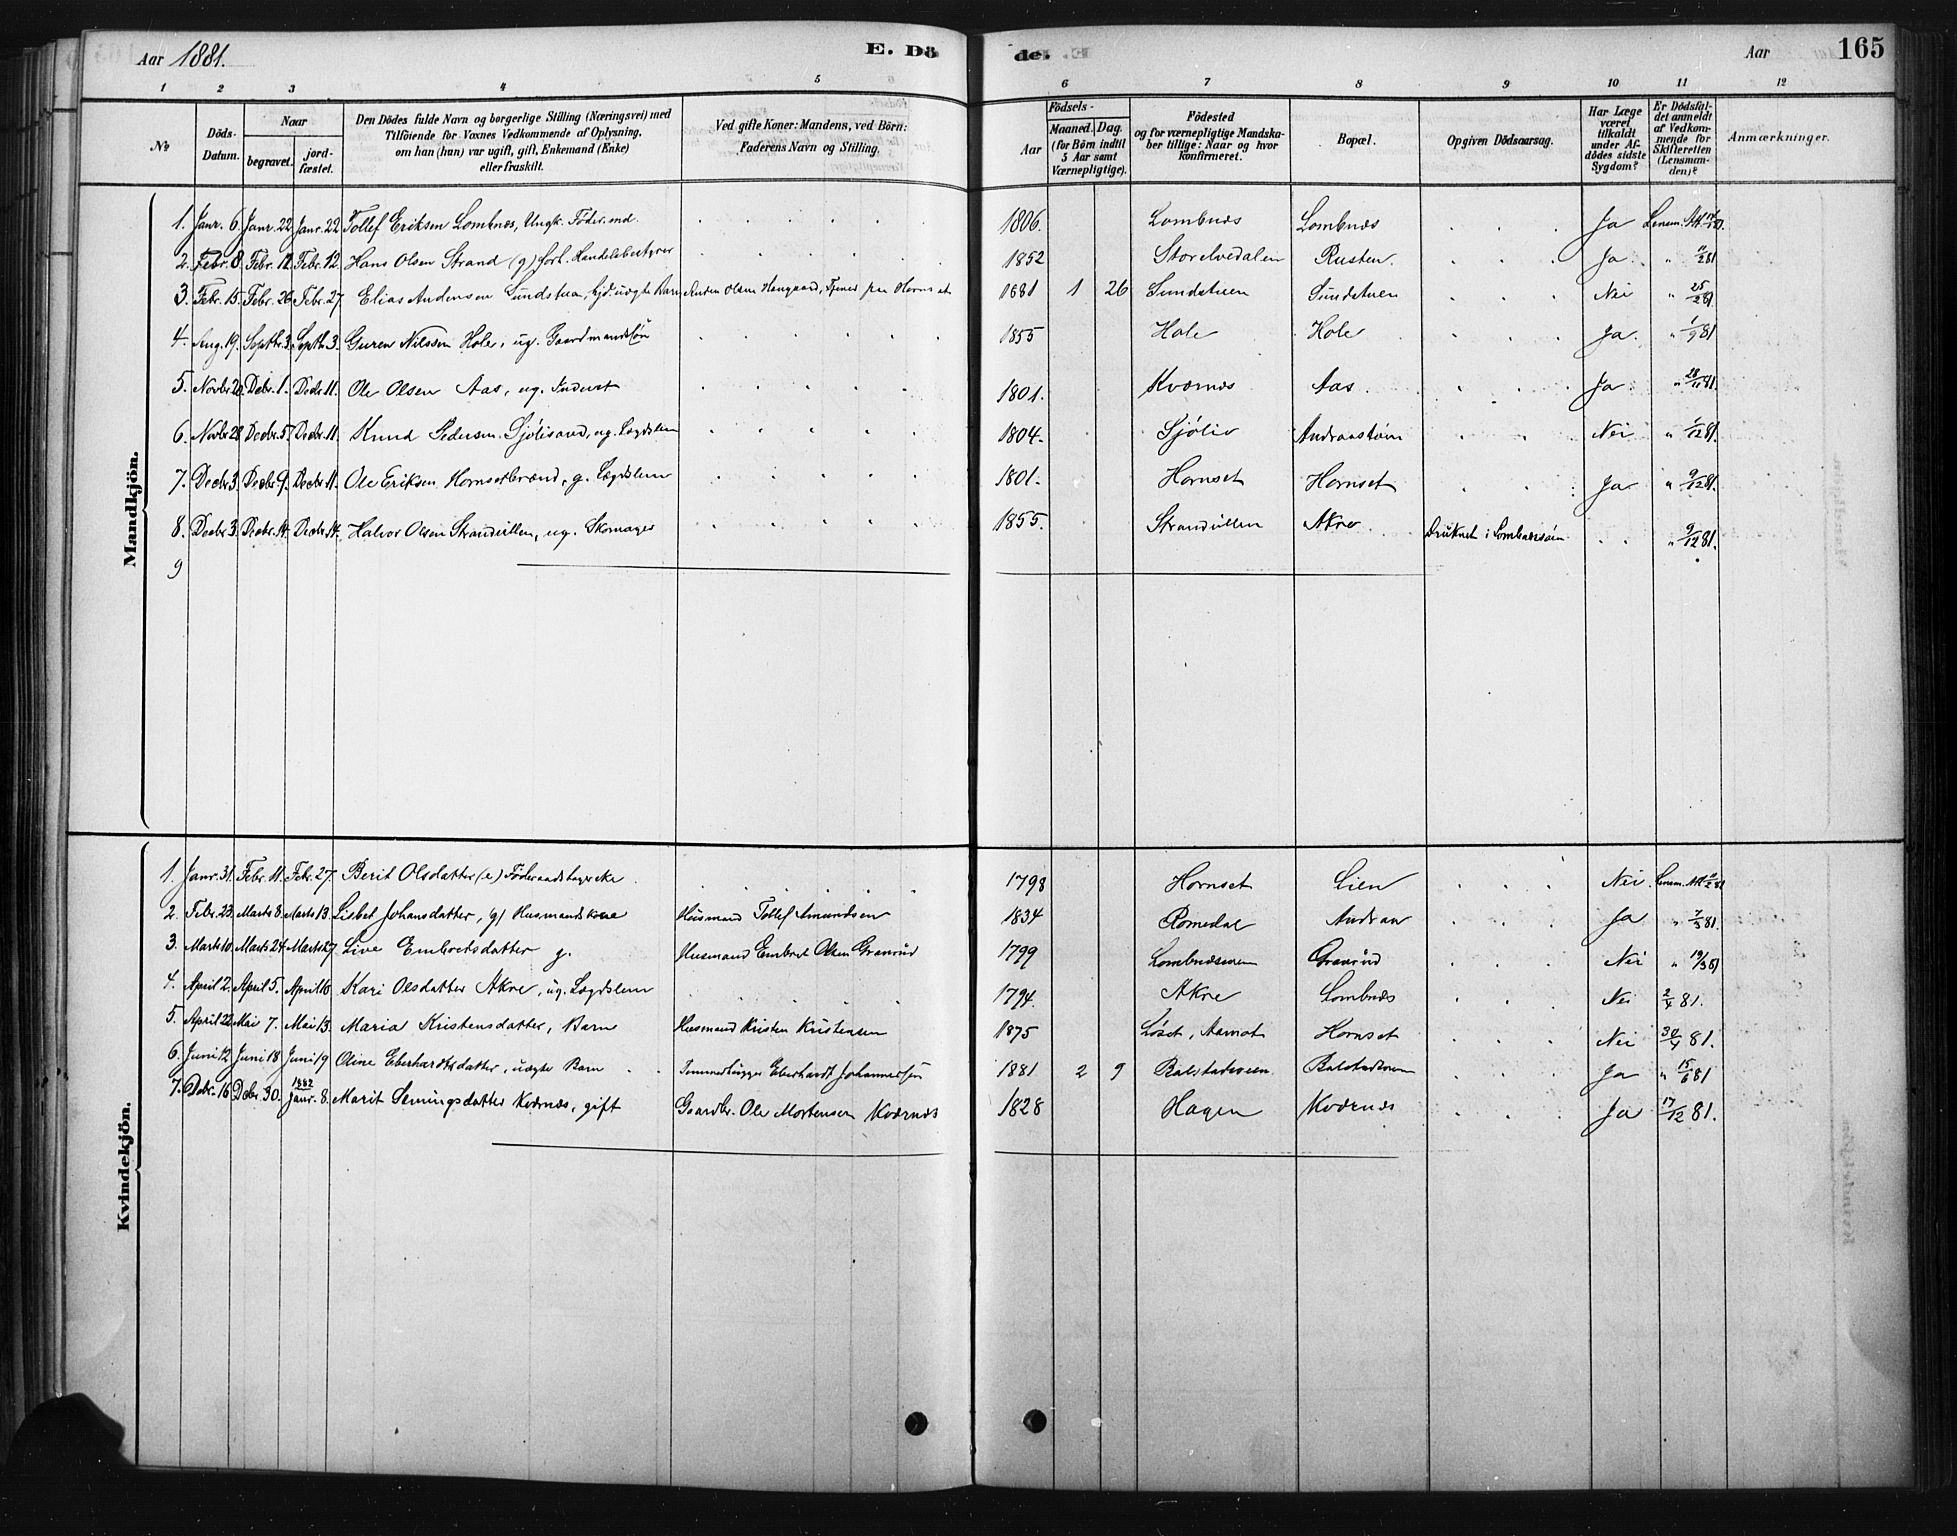 Aar 1881. E. Dö
de. Aar 165
1 2 3 4 5 6 7 8 9 10 11 12
No
Döds-Datum.
Naar
begravet.
jord-fæstet.
Den Dödes fulde Navn og borgerlige Stilling (Næringsvei) med
Tilföiende for Voxnes Vedkommende af Oplysning,
om han (hun) var ugift, gift, Enkemand (Enke)
eller fraskilt.
Ved gifte Koner: Mandens, ved Börn:
Faderens Navn og Stilling.
Födsels-
Aar
Maaned. Dag.
(for Börn indtil
5 Aar samt
Værnepligtige).
Födested
og for værnepligtige Mandska-
ber tillige: Naar og hvor
konfirmeret.
Bopæl.
Opgiven Dödsaarsag.
Har Læge
været
tilkaldt
under Af-
dödes sidste
Sygdom?
Er Dödsfal-
det anmeldt
af Vedkom-
mende for
Skifteretten
(Lensman-
den)?
Anmærkninger.
Mandkjön.
1. Janr. 6. Janr. 22 Janr. 22 Tollef Eriksen Lombnæs, Ungk. Föder.md. 1806. Lombnæs Lombnæs Ja Lensm. Att
2. Febr. 8. Febr. 12. Febr. 12. Hans Olsen Strand (g) forl. Handelsbestyrer 1852 Storelvedalen Rusten. Ja " 11/2 81
3. Febr. 15. Febr. 26. Febr. 27 Elias Andersen Sundstuen, Gjd. uægte Barn Olsen Haugaard, Tjener paa Hornset 1881 1 26 Sundstuen Sundstuen Nei " 25/2 81
4. Aug. 19. Septbr. 3. Septbr. 3. Guren Nilssen Hole, ug. Gaardmandssön 1855 Hole Hole Ja. " 1/9 81
5. Novbr. Debr. 1. Decbr. 11. Ole Olsen Aas, ug. Inderst 1801. Kværnæs Aas Ja " 28/11 81.
6. Novbr. 28 Decbr. 5. Decbr. 11. Knud Pedersen Sjölisand, ug. Lægdslem 1804. Sjöliv Nei " 1/12 81.
7. Decbr. 3. Decbr. 9. Decbr. 11. Ole Eriksen Hornsetbrænd, g. Lægdslem 1801. Hornset Hornset Ja " 9/12 81.
8. Decbr. 3. Decbr. 14. Decbr. 14. Halvor Olsen Strandvillen, ug. Skomager 1855. Strandvillen Akre Druknet i Lombnæssöen " 9/12 81.
9
Kvindekjön.
1. Janr. 31. Febr. 11. Febr. 27. Berit Olsdatter (e) Föderaadstagerske 1798 Hornset Lien Nei Lensm. Att 11/2 81
2. Febr. 23. Marts 8. Marts 13. Lisbet Johansdatter, (g) Husmandskone Husmand Tollef Amundsen 1834 Romedal Andraa Ja " 7/3 81.
3. Marts 10. Marts 24. Marts 27. Live Embretsdatter g. Husmand Embret Olsen Granrud 1799 Lombnæsmoen Granrud Nei " 19/3 81
4. April 2. April 5. April 16 Kari Olsdatter Akre, ug. Lægdslem 1794. Akre Lombnæs Nei 2/4 81.
5. April 22. Mai 7. Mai 13. Maria Kristensdatter, Barn Husmand Kristen Kristensen 1875 Löset, Aamot Hornset Nei 30/4 81.
6. Juni 12 Juni 18 Juni 19 Oline Eberhardtsdatter, uægte Barn Tömmerhugger Eberhardt Johannessen 1881 2 9 Balstadmoen Balstadmoen Ja " 15/6 81
7. Decbr. 16. Decbr. 30. 1882 Janr. 8. Marit Semingsdatter Kværnæs, gift Gaardbr. Ole Mortensen Kværnæs 1828 Hagen Kværnæs Ja 17/12 81.